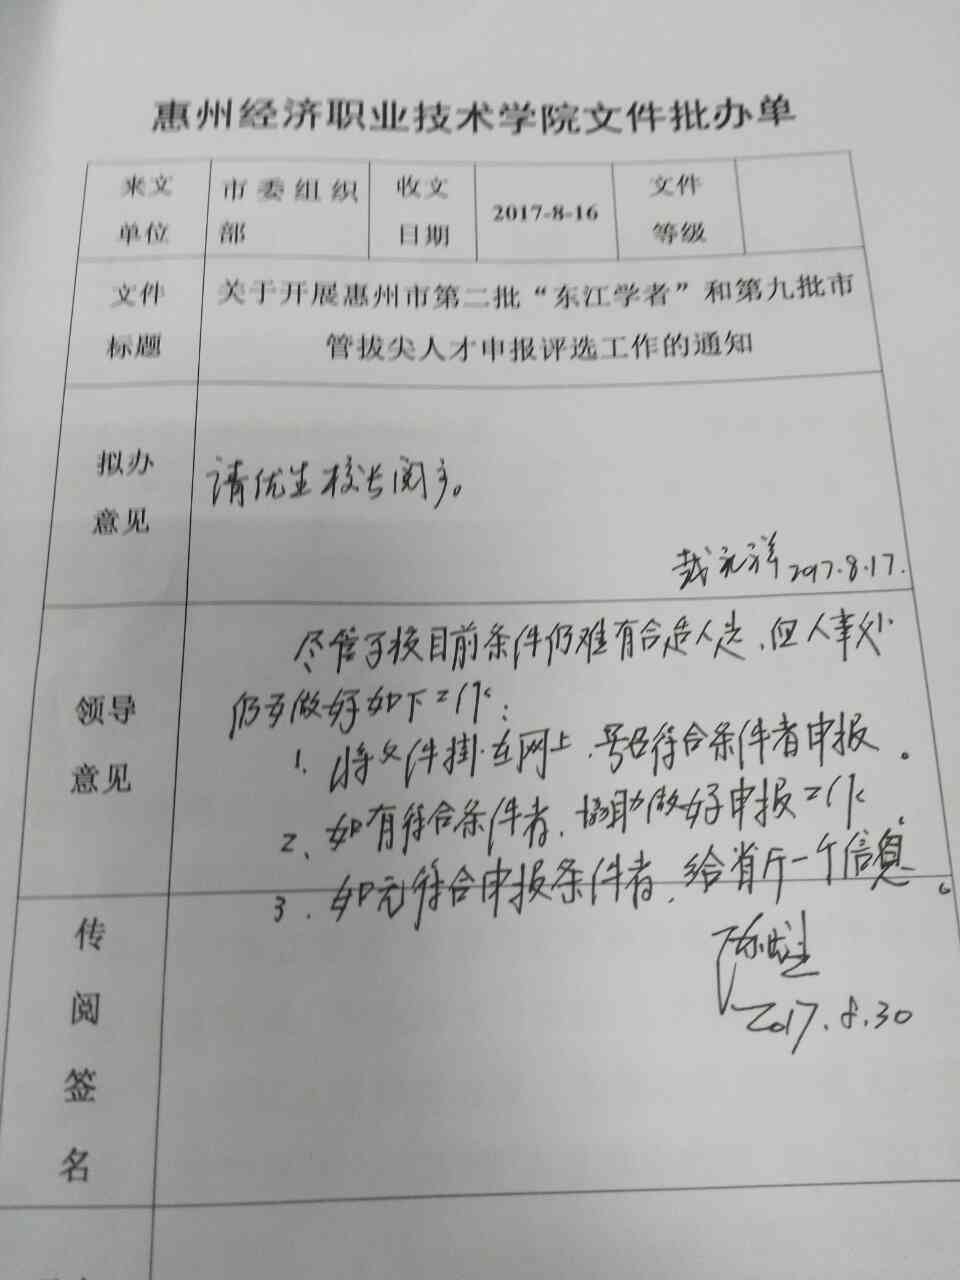 惠州经济职业技术学院文件批办单
来文单位
市委组织部
收文日期
2017-8-16
文件等级
文件标题
关于开展惠州市第二批“东江学者”和第九批市
管拔尖人才申报评选工作的通知
拟办意见
请优生校长阅示。
2017.8.17.
领导意见
尽管学校目前条件仍难有合适人选,但人事处
仍要做好如下工作:
1、将文件掛在网上,号召符合条件者申报。
2、如有符合条件者,协助做好申报工作。
3、如无符合申报条件者,给省厅一个信息。
2017.8.30
传阅签名